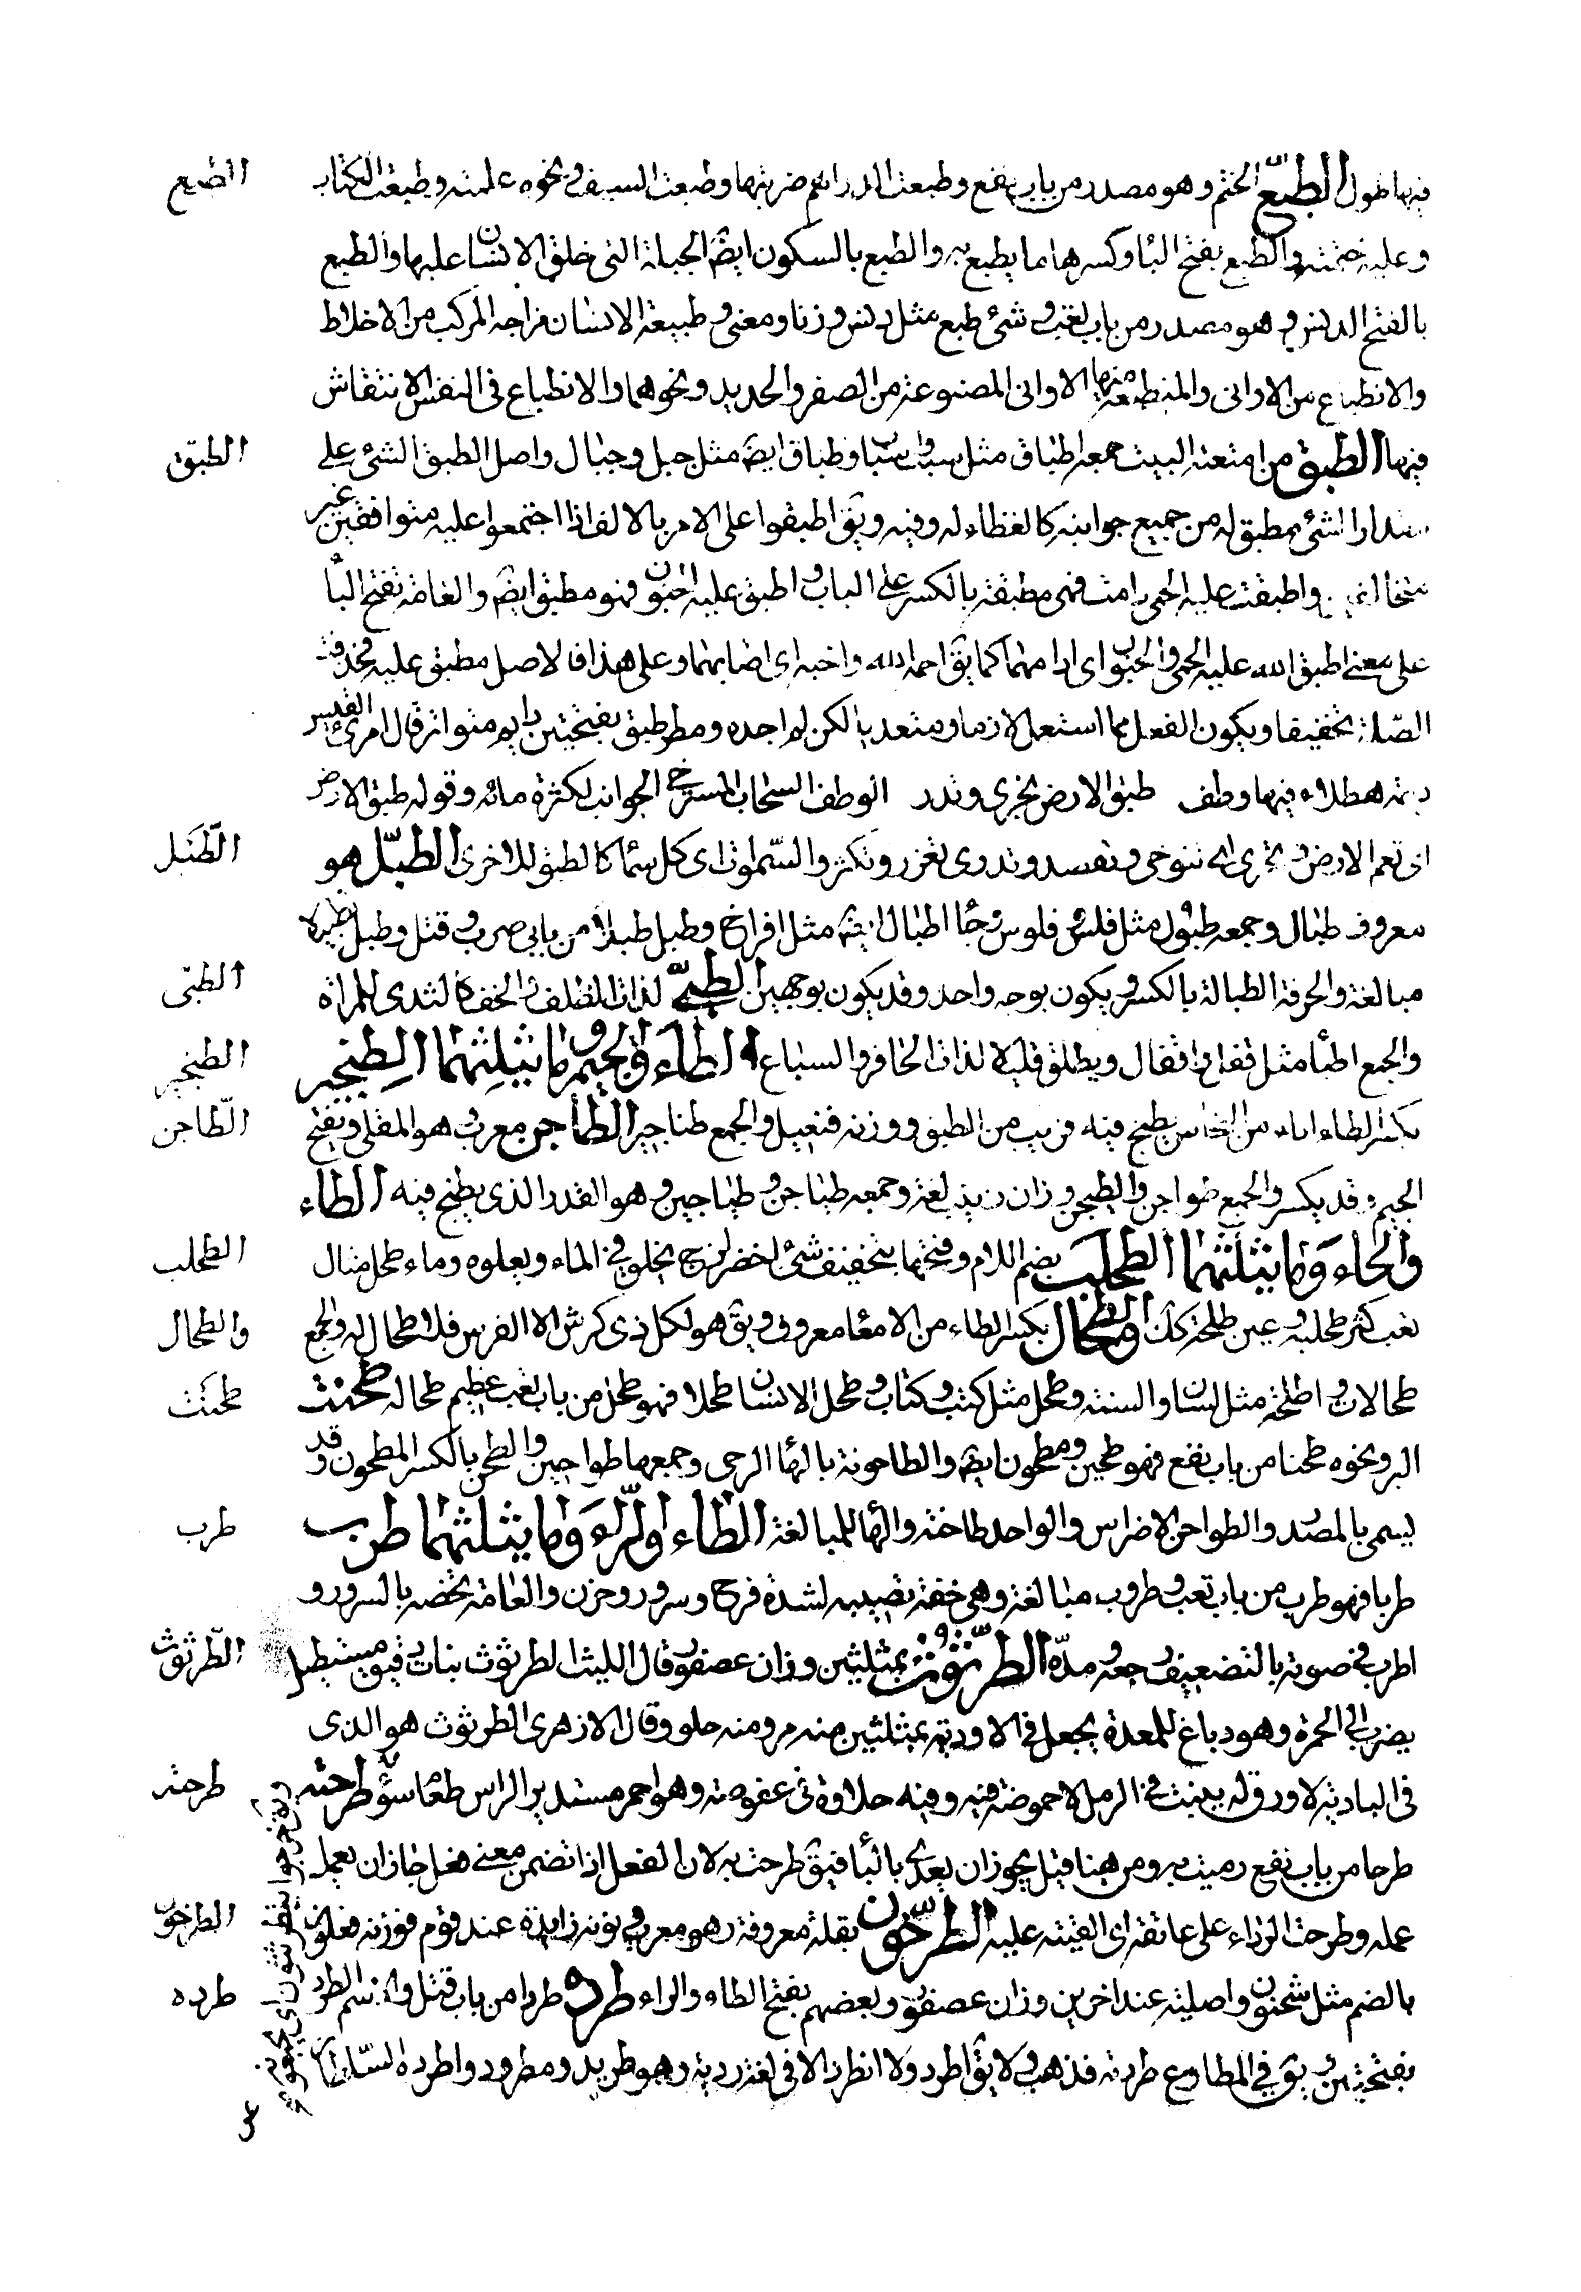 فيها طول الطبع الختم وهو مصدر من باب نفع وطبعت الدراهم ضربتها وطبعت السيف ونحوه عملته وطبعت الكتاب
الطبع
وعليه ختمته والطبع بفتح البا وكسرها ما يطبع به والطبع بالسكون ايضً الجبلة التى خلق الانسان عليها والطبع
بالفتح الدنس وهو مصدر من باب تعب وشئ طبع مثل دنس وزنا ومعنى وطبيعة الانسان مزاجه المركب من الاخلاط
والانطباع من الاوانى والمنطبعة منها الاوانى المصنوعة من الصفر والحديد ونحوهما والانطباع فى النفس الانتقاش
فيها الطبق من امتعة البيت جمعه اطباق مثل سبب واسباب وطباق ايضً مثل جبل وجبال واصل الطبق الشئ على
الطبق
مقدار الشئ مطبق له من جميع جوانبه كالغطاء له وفيه ويق اطبقوا على الامر بالالف اذا اجتمعوا عليه متوافقين غير
واطبقت عليه الحمى دامت فهى مطبقة بالكسر على الباب واطبق عليه الجنون فهو مطبق ايضً والعامة تفتح البا
على معنى اطبق الله عليه الحمى والجنون اى ادامهما كما يق احمه الله واجنه اى اصابه بهما وعلى هذا فالاصل مطبق عليه فحذفت
الصلة تخفيفا ويكون الفعل مما استعمل لازما ومتعديا لكن لم اجده ومطر طبق بفتحتين دايم متواتر قال امرئ القيس
ديمة هطلاء فيها وطف طبق الارض تجرى وتدر الوطف السحاب المسترخى الجوانب لكثرة مائه وقوله طبق الارض
اى تعم الارض وتجرى اى تتوخى وتقصد وتدر اى تغزر وتكثر والسموات اى كل سما كالطبق للاخرى الطبل هو
الطبل
معروف طبال وجمعه طبول مثل فلس وفلوس وجا اطبال ايضً مثل افراخ وطبل طبلا من بابى ضرب وقتل وطبل تطبيلا
مبالغة والحرفة الطبالة بالكسر ويكون بوجه واحد وقد يكون بوجهين الطبى لذات الظلف والخف كالثدى للمراة
الطبى
والجمع اطبا مثل قفل واقفال ويطلق قليلا لذات الحافر والسباع الطاء والجيم وما يثلثهما الطنجير
الطنجير
بكسر الطاء اناء من النحاس يطبخ فيه قريب من الطبق ووزنه فنعيل والجمع طناجير الطاجن معرب هو المقلى وبفتح
الطاجن
الجيم وقد يكسر والجمع طواجن والطيجن وزان زينب لغة وجمعه طياجن وطياجين وهو القدر الذى يطبخ فيه الطاء
والحاء وما يثلثهما الطحلب بضم اللام وفتحها تخفيف شئ اخضر لزج يخلق فى الماء ويعلوه وماء طحل مثال
الطحلب
تعب كثر طحلبه وعين طلحة كك الطحال بكسر الطاء من الامعا معروف ويق هو لكل ذى كرش الا الفرس فلا طحال له والجمع
والطحال
طحالات واطلحة مثل لسان والسنة وطحل مثل كتب وكتاب وطحل الانسان طحلا فهو طحل من باب تعب عظيم طحاله طحنت
طحنت
البر ونحوه طحنا من باب نفع فهو طحين ومطحون ايضً والطاحونة بالها الرحى وجمعها طواحين والطحن بالكسر المطحون وقد
يسمى بالمصدر والطواحن الاضراس والواحد طاحنة والها للمبالغة الطاء والراء وما يثلثهما طرب
طرب
طربا فهو طرب من باب تعب وطروب مبالغة وهى خفة تصيبه لشدة فرح وسرور وحزن والعامة تخصه بالسرور و
اطرب فى صوته بالتضعيف رجعه ومده الطرثوث بمثلثين وزان عصفور قال الليث الطرثوث نبات دقيق مستطيل
الطرثوث
يضرب الى الحمرة وهو دباغ للمعدة يجعل فى الادوية بمثلثين منه مر ومنه حلو وقال الازهرى الطرثوث هو الذى
فى البادية لا ورق له ينبت فى الرمل لا حموضة فيه وفيه حلاوة فى عفوصة وهو احمر مستدير الراس طعاما سوا طرحته
طرحته
طرحا من باب نفع رميت به ومن هنا قيل يجوز ان يعدى بالبا فيق طرحت به لان الفعل اذا تضمن معنى فعل جاز ان يعمل
عمله وطرحت الرداء على عاتقه اى القيته عليه الطرخون بقلة معروفة وهو معرب ونونه زايدة عند قوم فوزنه فعلون
الطرخون
بالضم مثل سحنون واصلية عند اخرين وزان عصفور وبعضهم بفتح الطاء والراء طرده طردا من باب قتل والاسم الطرد
طرده
بفتحتين ويق فى المطاوع طردته فذهب ولا يق اطرد ولا انطرد الا فى لغة ردية وهو طريد ومطرود واطرده السلطان